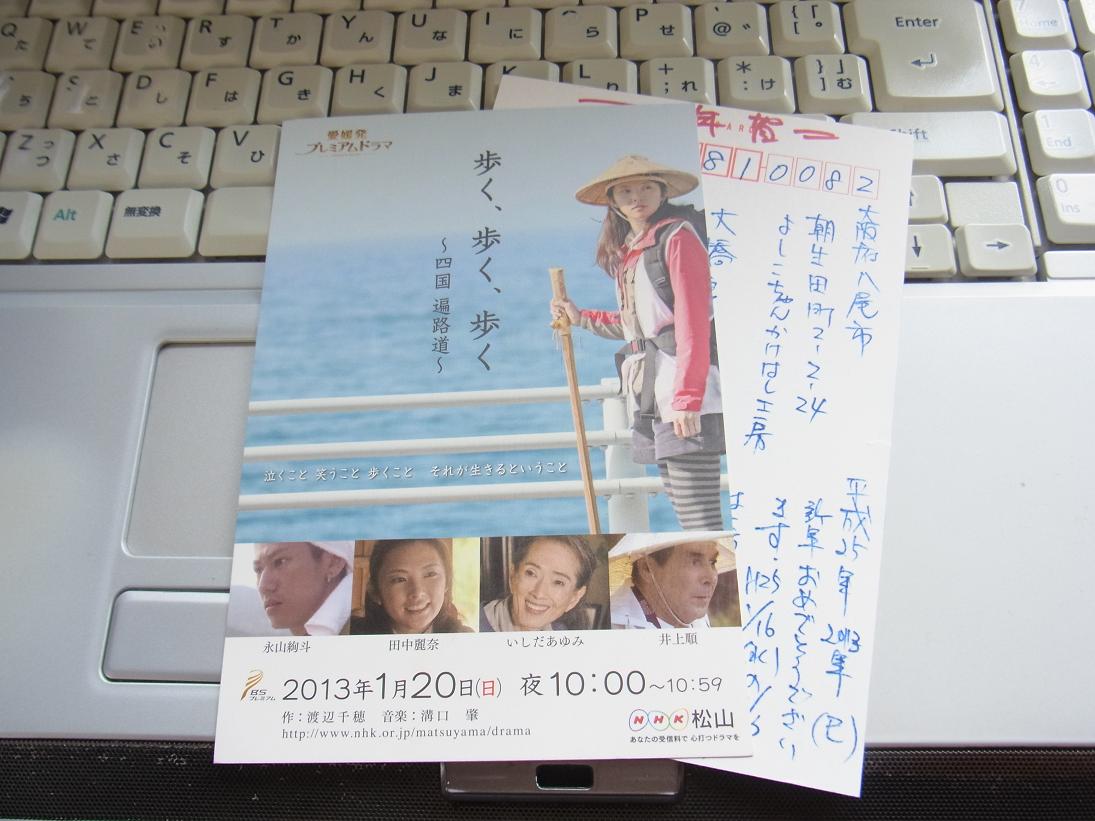 Q た
W て
E い ぃ
R す
T か
Y ん
U な
I に
O ら
P せ
@ ゛
{ 「
[ ゜
Enter
S と
D し
F は
G き
H く
J ま
K
L り
+ ; れ
* : け
} 」
] む
Shift
Z つ っ
X さ
C そ
V ひ
Alt
無変換
↓
→
7 Home
4 ←
1 End
0 Ins
愛媛発
プレミアムドラマ
歩く、歩く、歩く
～四国 遍路道～
泣くこと 笑うこと 歩くこと それが生きるということ
永山絢斗
田中麗奈
いしだあゆみ
井上順
BS
プレミアム
2013年1月20日(日) 夜10:00～10:59
作:渡辺千穂 音楽:溝口 肇
http://www.nhk.or.jp/matsuyama/drama
NHK 松山
あなたの受信料で 心打つドラマを
年賀
810082
大阪府八尾市
朝生田町2-2-24
よしこちゃんかけはし工房
大喬
平成25年 2013年(巳)
新年おめでとうござい
ます。H25
1/16